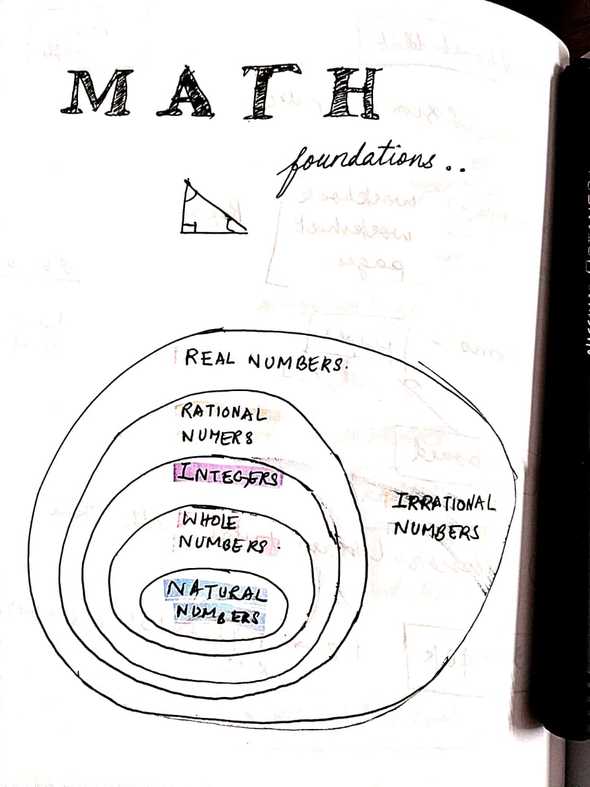 MATH
foundations..
REAL NUMBERS.
RATIONAL
NUMERS
INTEGERS
WHOLE
NUMBERS.
NATURAL
NUMBERS
IRRATIONAL
NUMBERS